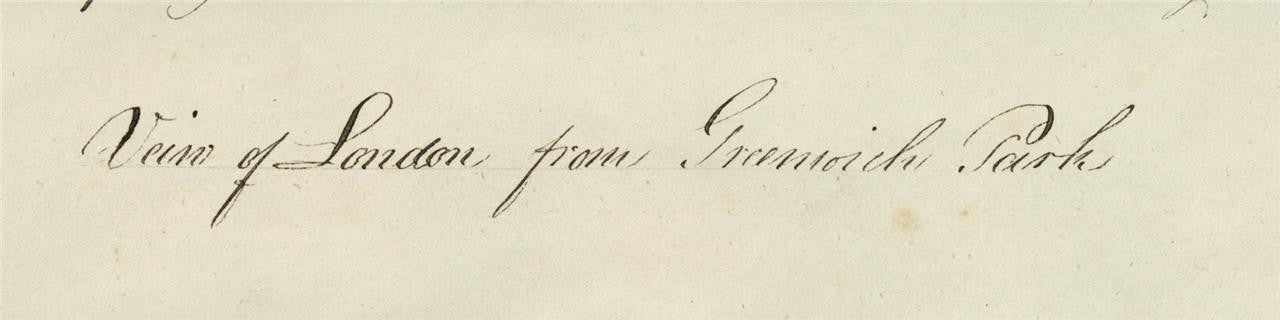 Veiw of London from Greenwich Park